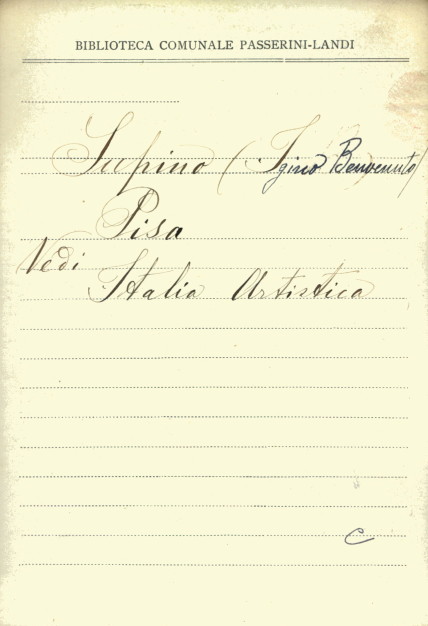 BIBLIOTECA COMUNALE PASSERINI-LANDI
Supino (Igino Benvenuto)
Pisa
Vedi
Italia Artistica
C